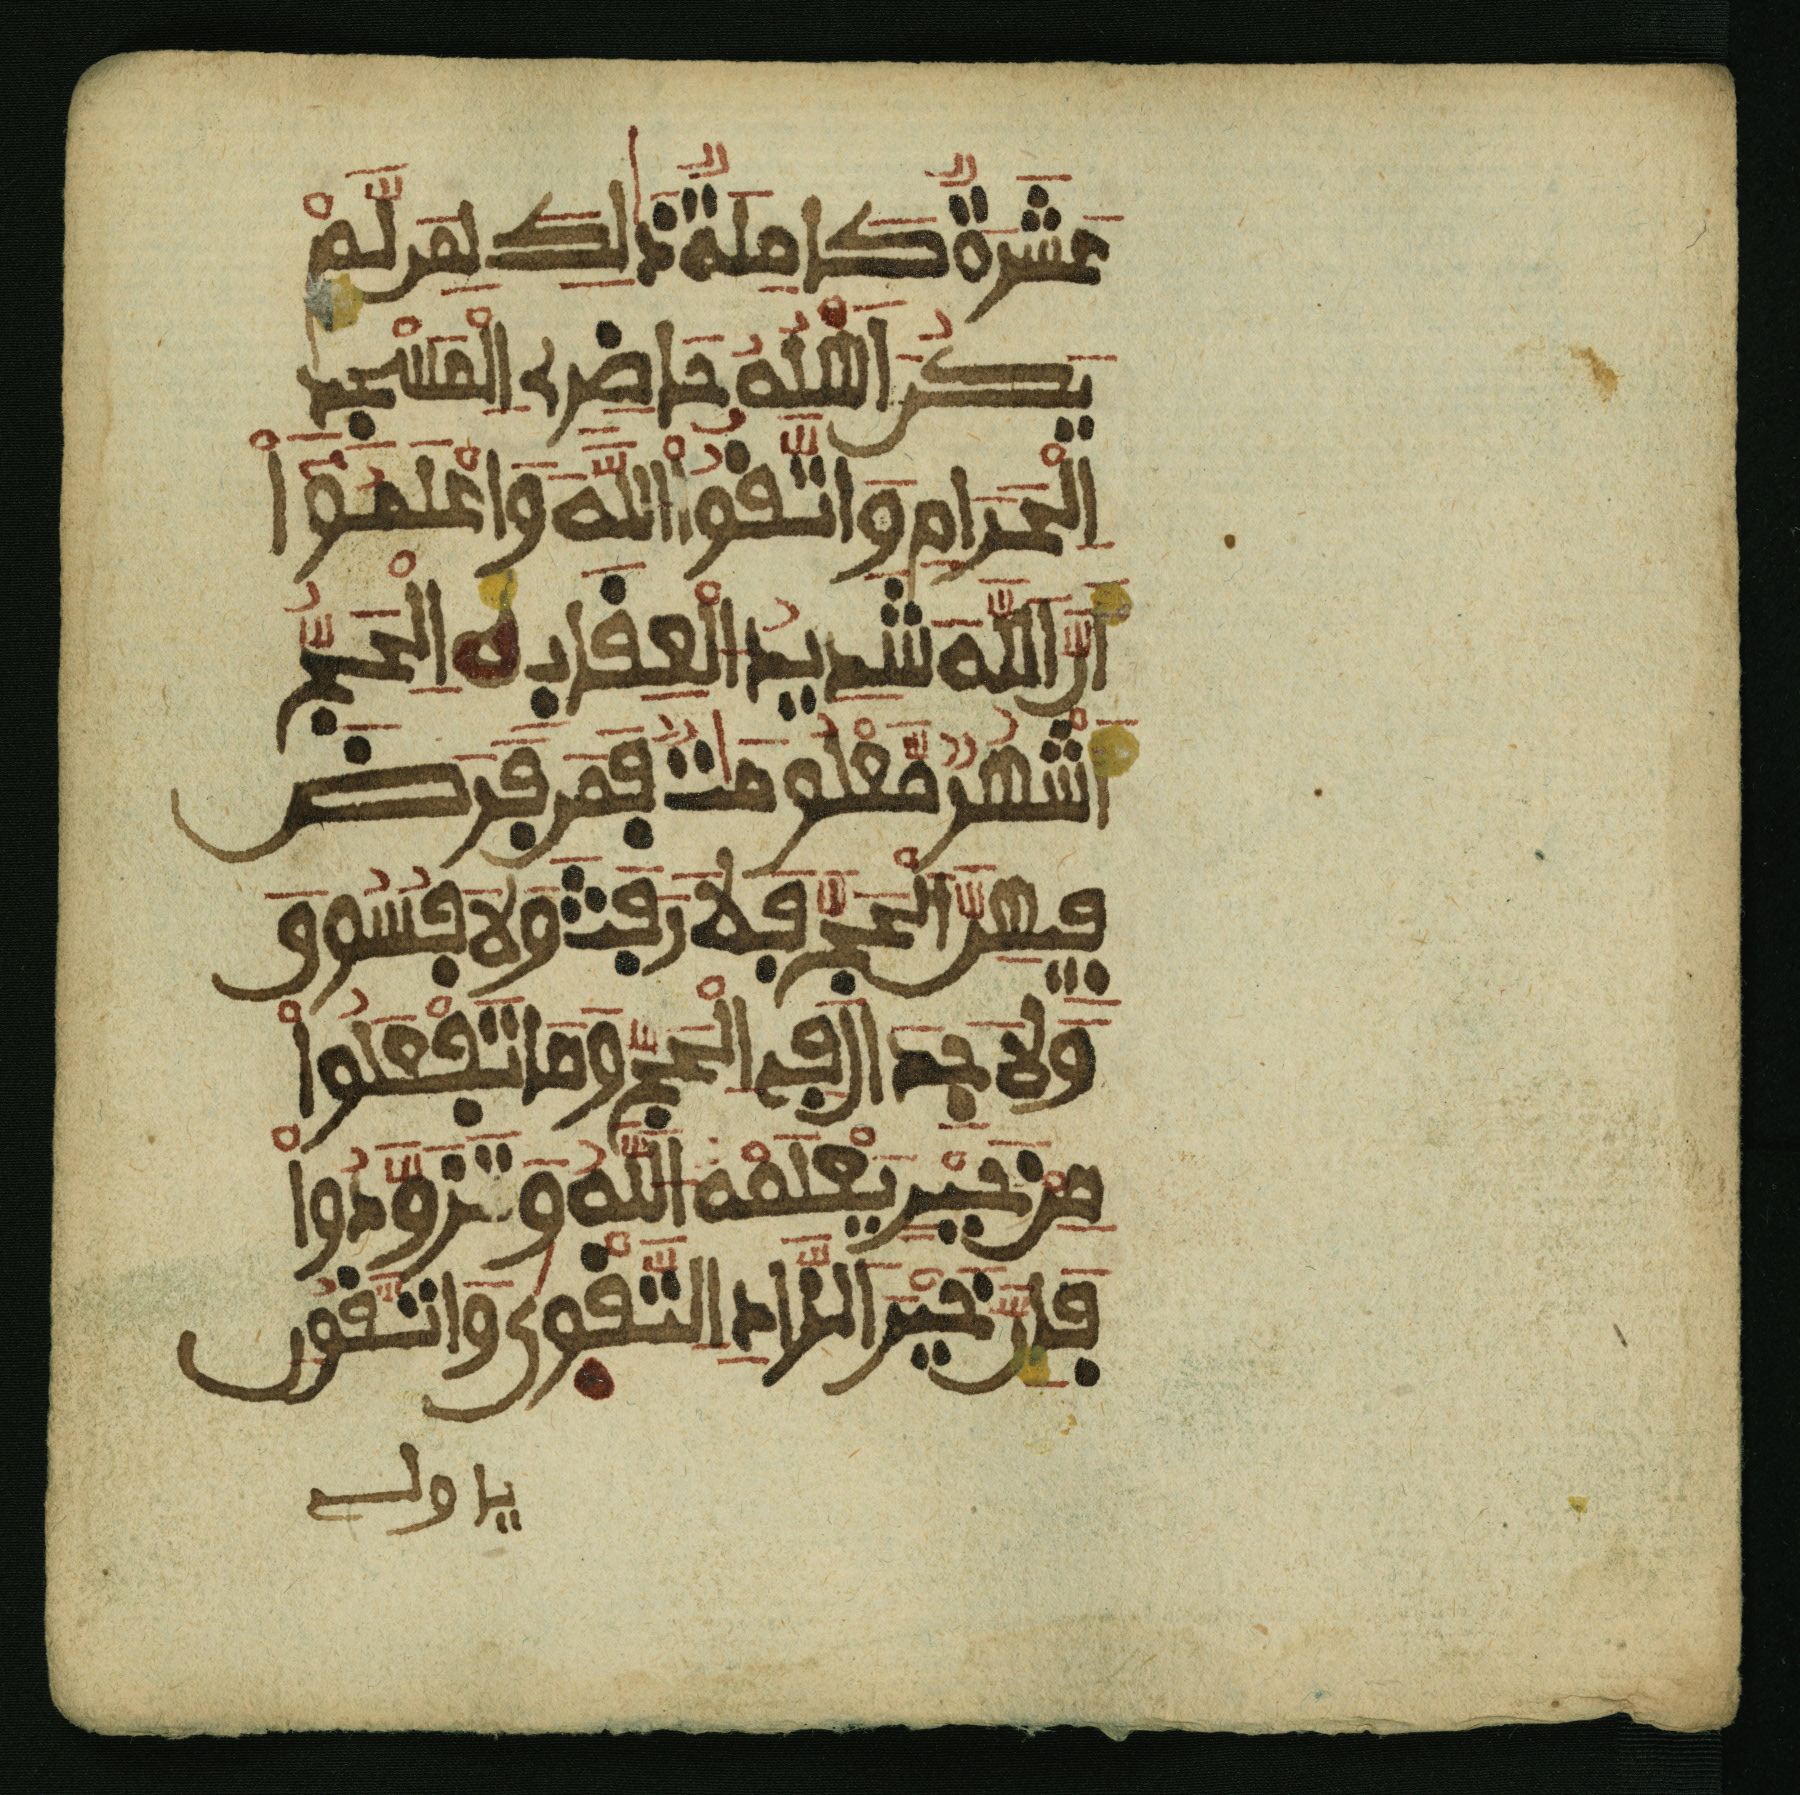 عَشَرَةٌ كَامِلَةٌ ذَٰلِكَ لِمَن لَّمْ
يَكُنَ اهْلُهُ حَاضِرِى الْمَسْجِدِ
الْحَرَامِ وَاتَّقُواْ اللَّهَ وَاعْلَمُوٓاْ
أَنَّ اللَّهَ شَدِيدُ الْعِقَابِ الْحَجُّ
أَشْهُرٌ مَّعْلُومَٰتٌ فَمَن فَرَضَ
فِيهِنَّ الْحَجَّ فَلَا رَفَثَ وَلَا فُسُوقَ
وَلَا جِدَالَ فِى الْحَجِّ وَمَا تَفْعَلُواْ
مِنْ خَيْرٍ يَعْلَمْهُ اللَّهُ وَتَزَوَّدُواْ
فَإِنَّ خَيْرَ الزَّادِ التَّقْوَىٰ وَاتَّقُونِ
يا ولے